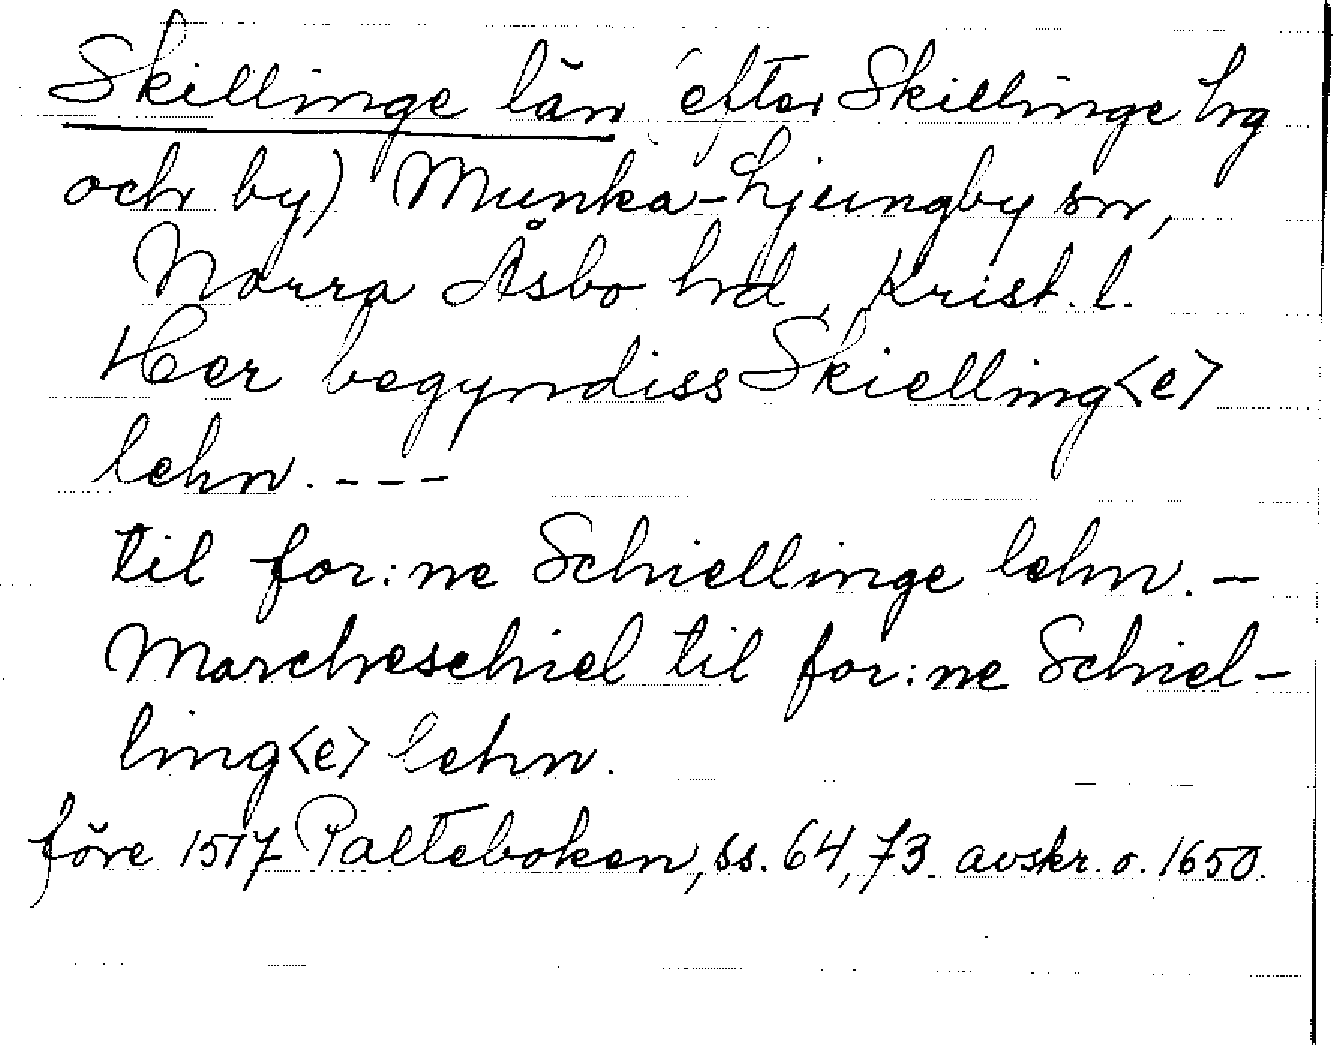 Skillinge län (efter Skillinge hg
och by) Munka-Ljungby sn,
Norra Åsbo hd, Krist. l.
Her begyndiss Skielling<e>
lehn. - - -
til for:ne Schiellinge lehn. -
Marcheschiel til for:ne Schiel-
ling<e> lehn.
före 1517 Palteboken, ss. 64, 73. avskr. o. 1650.